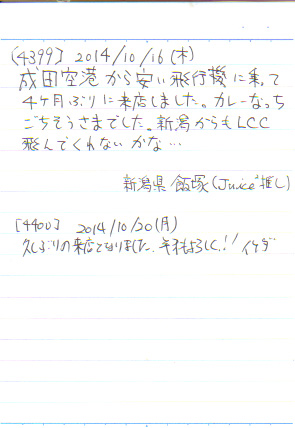 (4399] 2014/10/16(木)
成田空港から安い飛行機に乗って
4ヶ月ぶりに来店しました。カレーなっち
ごちそうさまでした。新潟からもLCC
飛んでくれないかな…
新潟県 飯塚(Juice推し)
[4400] 2014/10/20(月)
久しぶりの来店となりました。よろしく!! イケダ